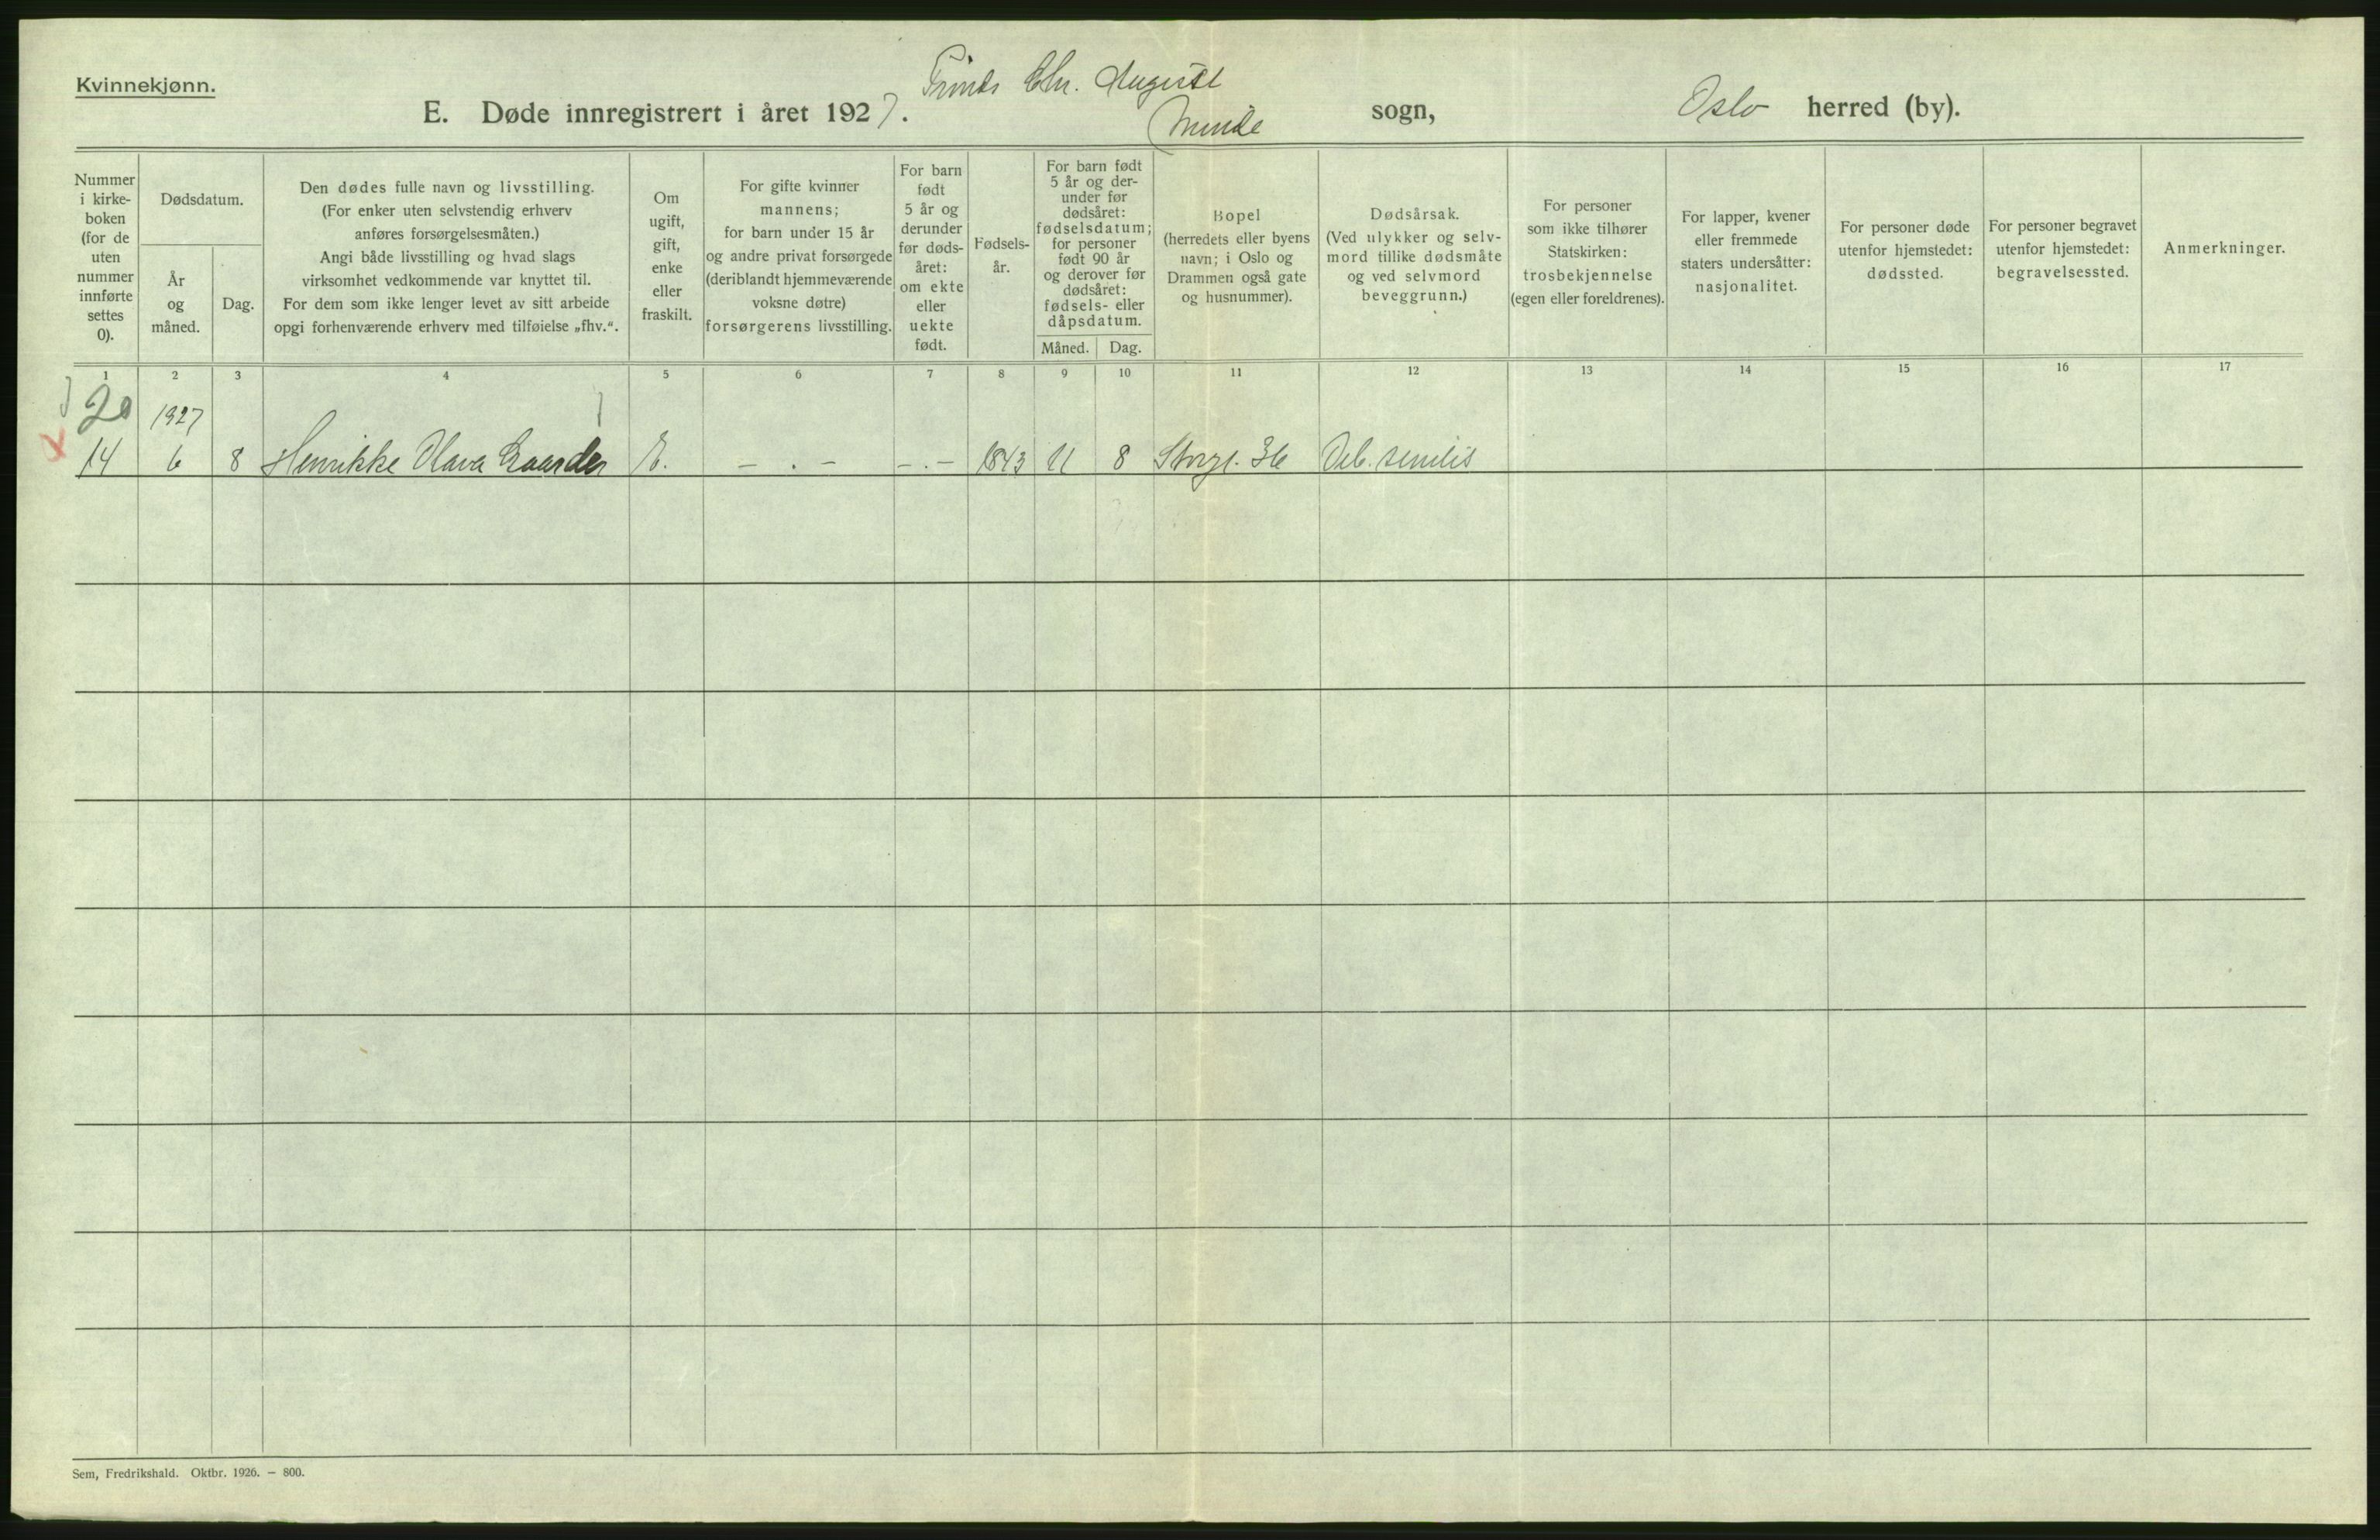 Kvinnekjønn.
E. Døde innregistrert i året 1927. Prinds Chr. August Minde sogn, Oslo herred (by).
Nummer i kirke-boken (for de uten nummer innførte settes 0).
Dødsdatum.
År og måned.
Dag.
Den dødes fulle navn og livsstilling.
(For enker uten selvstendig erhverv
anføres forsørgelsesmåten.)
Angi både livsstilling og hvad slags
virksomhet vedkommende var knyttet til.
For dem som ikke lenger levet av sitt arbeide
opgi forhenværende erhverv med tilføielse „fhv.“.
Om
ugift,
gift,
enke
eller
fraskilt.
For gifte kvinner
mannens;
for barn under 15 år
og andre privat forsørgede
(deriblandt hjemmeværende
voksne døtre)
forsørgerens livsstilling.
For barn
født
5 år og
derunder
før døds-
året:
om ekte
eller
uekte
født.
Fødsels-
år.
For barn født
5 år og der-
under før
dødsåret:
fødselsdatum;
for personer
født 90 år
og derover før
dødsåret:
fødsels- eller
dåpsdatum.
Måned. Dag.
Bopel
(herredets eller byens
navn; i Oslo og
Drammen også gate
og husnummer).
Dødsårsak.
(Ved ulykker og selv-
mord tillike dødsmåte
og ved selvmord
beveggrunn.)
For personer
som ikke tilhører
Statskirken:
trosbekjennelse
(egen eller foreldrenes).
For lapper, kvener
eller fremmede
staters undersåtter:
nasjonalitet.
For personer døde
utenfor hjemstedet:
dødssted.
For personer begravet
utenfor hjemstedet:
begravelsessted.
Anmerkninger.
1 2 3 4 5 6 7 8 9 10 11 12 13 14 15 16 17
20 1927
14 6 8 Henrikke Olava Gaarder E. - . - - . - 1843 11 8 Storgt. 36 Deb. senilis
Sem, Fredrikshald. Oktbr. 1926. — 800.